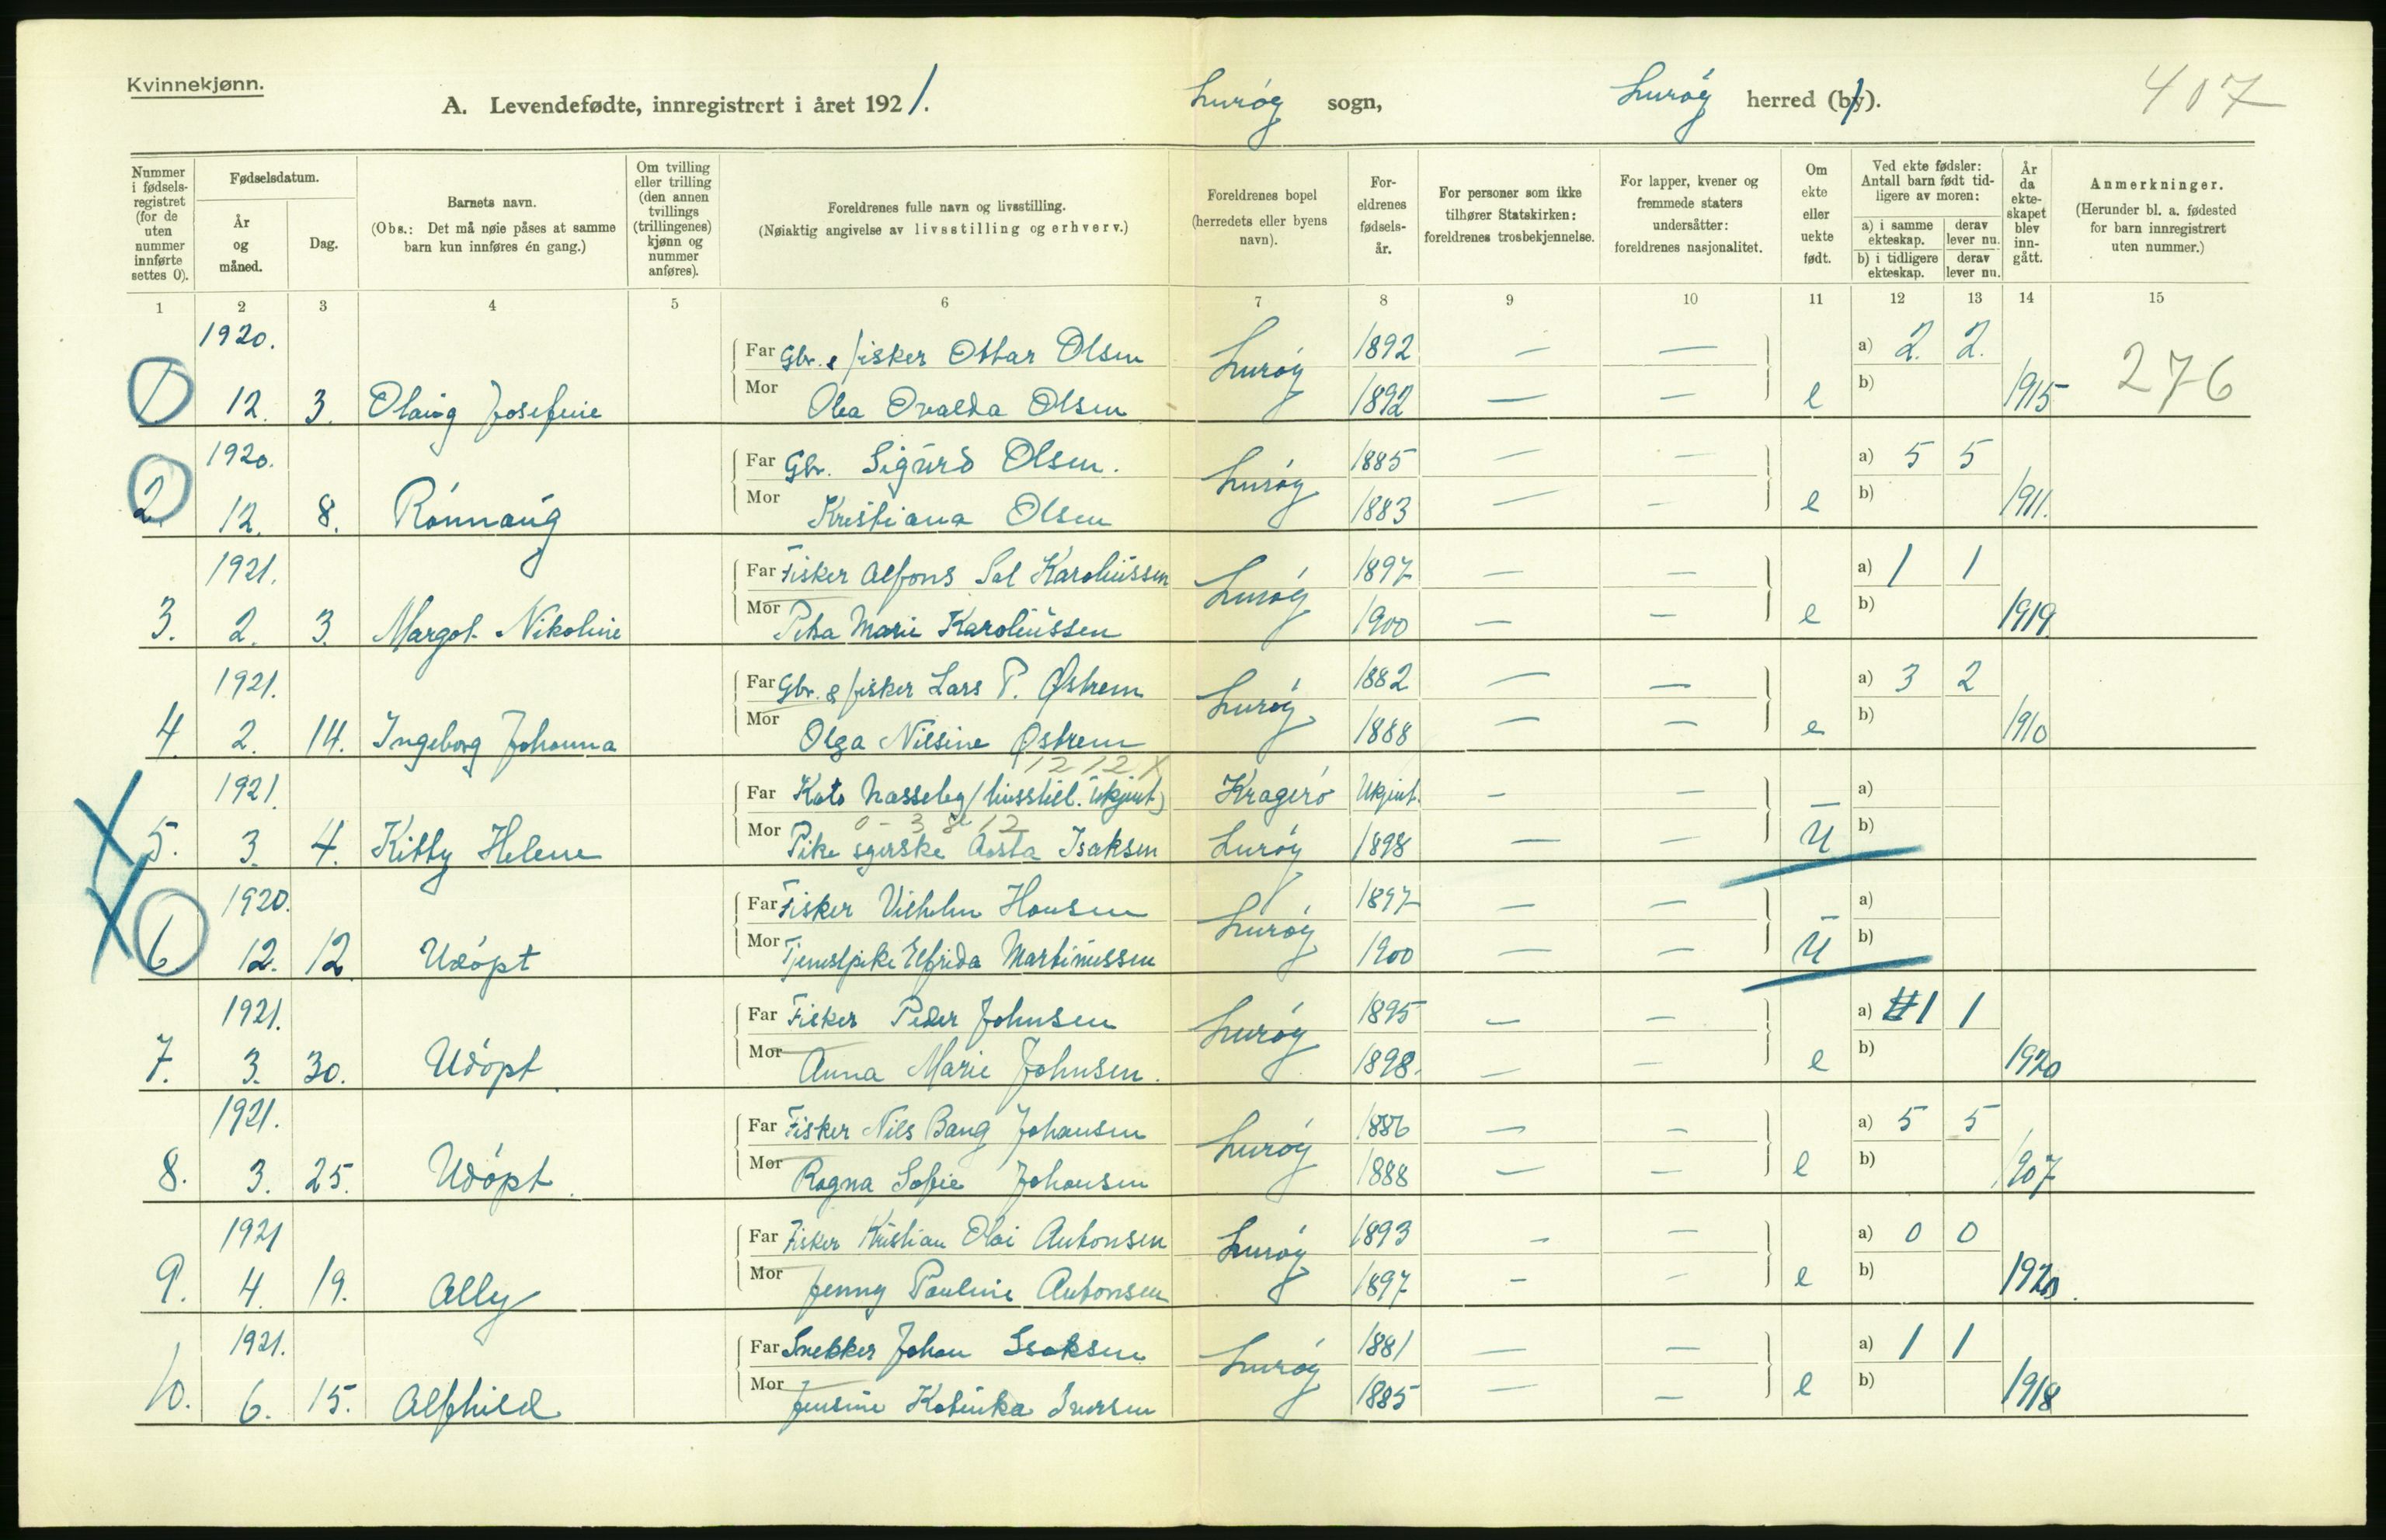 Kvinnekjønn.
A. Levendefødte, innregistrert i året 1921. Lurøy sogn, Lurøy herred (by). 407
Nummer i fødsels-registret (for de uten nummer innførte settes 0).
Fødselsdatum.
År og måned.
Dag.
Barnets navn.
(Obs.: Det må nøie påses at samme barn kun innføres én gang.)
Om tvilling eller trilling (den annen tvillings (trillingenes) kjønn og nummer anføres).
Foreldrenes fulle navn og livsstilling.
(Nøiaktig angivelse av livsstilling og erhverv.)
Foreldrenes bopel (herredets eller byens navn).
For-eldrenes fødsels-år.
For personer som ikke tilhører Statskirken: foreldrenes trosbekjennelse.
For lapper, kvener og fremmede staters undersåtter: foreldrenes nasjonalitet.
Om ekte eller uekte født.
Ved ekte fødsler: Antall barn født tid-ligere av moren:
a) i samme ekteskap. derav lever nu.
b) i tidligere ekteskap. derav lever nu.
År da ekte-skapet blev inn-gått.
Anmerkninger.
(Herunder bl. a. fødested for barn innregistrert uten nummer.)
1 2 3 4 5 6 7 8 9 10 11 12 13 14 15
1920. Far Gbr. & fisker Ottar Olsen Lurøy 1892 — — a) 2. 2. 276
1 12. 3. Olaug Josefine Mor Olea Ovalda Olsen 1892 — — e b) 1915
1920. Far Gbr. Sigurd Olsen. Lurøy 1885 — — a) 5 5
2. 12. 8. Rønnaug Mor Kristiana Olsen 1883 — — e b) 1911.
1921. Far Fisker Alfons Sel Karoliussen Lurøy 1897 — — a) 1 1
3. 2. 3. Margot Nikoline Mor Petra Marie Karoliussen 1900 — — e b) 1919.
1921. Far Gbr. & fisker Lars P. Østrem Lurøy 1882 — — a) 3 2
4. 2. 14. Ingeborg Johanna Mor Olga Nilsine Østrem 1888 — — e b) 1910
12 12 X
1921. Far Kato Nasseløy (livsstil. ukjent) Kragerø Ukjent. — — a)
0 - 3 8 12
5. 3. 4. Kitty Helene Mor Pike syerske Aasta Isaksen Lurøy 1898 — — U b)
1920. Far Fisker Vilhelm Hansen Lurøy 1897 — — a)
6 12. 12. Udøpt Mor Tjenestpike Elfrida Martinussen 1900 — — U b)
1921. Far Fisker Peder Johnsen Lurøy 1895 — — a) 1 1
7. 3. 30. Udøpt Mor Anna Marie Johnsen. 1898. — — e b) 1920
1921. Far Fisker Nils Bang Johansen Lurøy 1886 — — a) 5 5
8. 3. 25. Udøpt. Mor Ragna Sofie Johansen 1888 — — e b) 1907
1921 Far Fisker Kristian Olai Antonsen Lurøy 1893 — — a) 0 0
9. 4. 19. Ally Mor Jenny Pauline Antonsen 1897 — — e b) 1920.
1921. Far Snekker Johan Isaksen Lurøy 1881 — — a) 1 1
10. 6. 15. Alfhild Mor Jensine Katinka Iversen 1885 — — e b) 1918